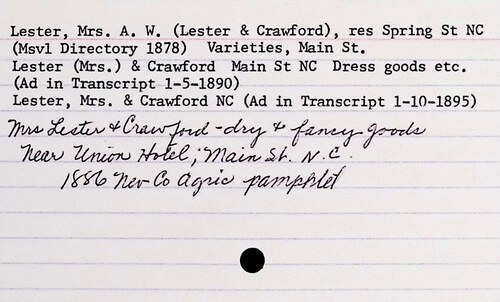 Lester, Mrs. A. W. (Lester & Crawford), res Spring St NC
(Msvl Directory 1878) Varieties, Main St.
Lester (Mrs.) & Crawford Main St NC Dress goods etc.
(Ad in Transcript 1-5-1890)
Lester, Mrs. & Crawford NC (Ad in Transcript 1-10-1895)
Mrs Lester & Crawford - dry & fancy goods
Near Union Hotel, Main St. N.C.
1886 Nev Co Agric pamphlet